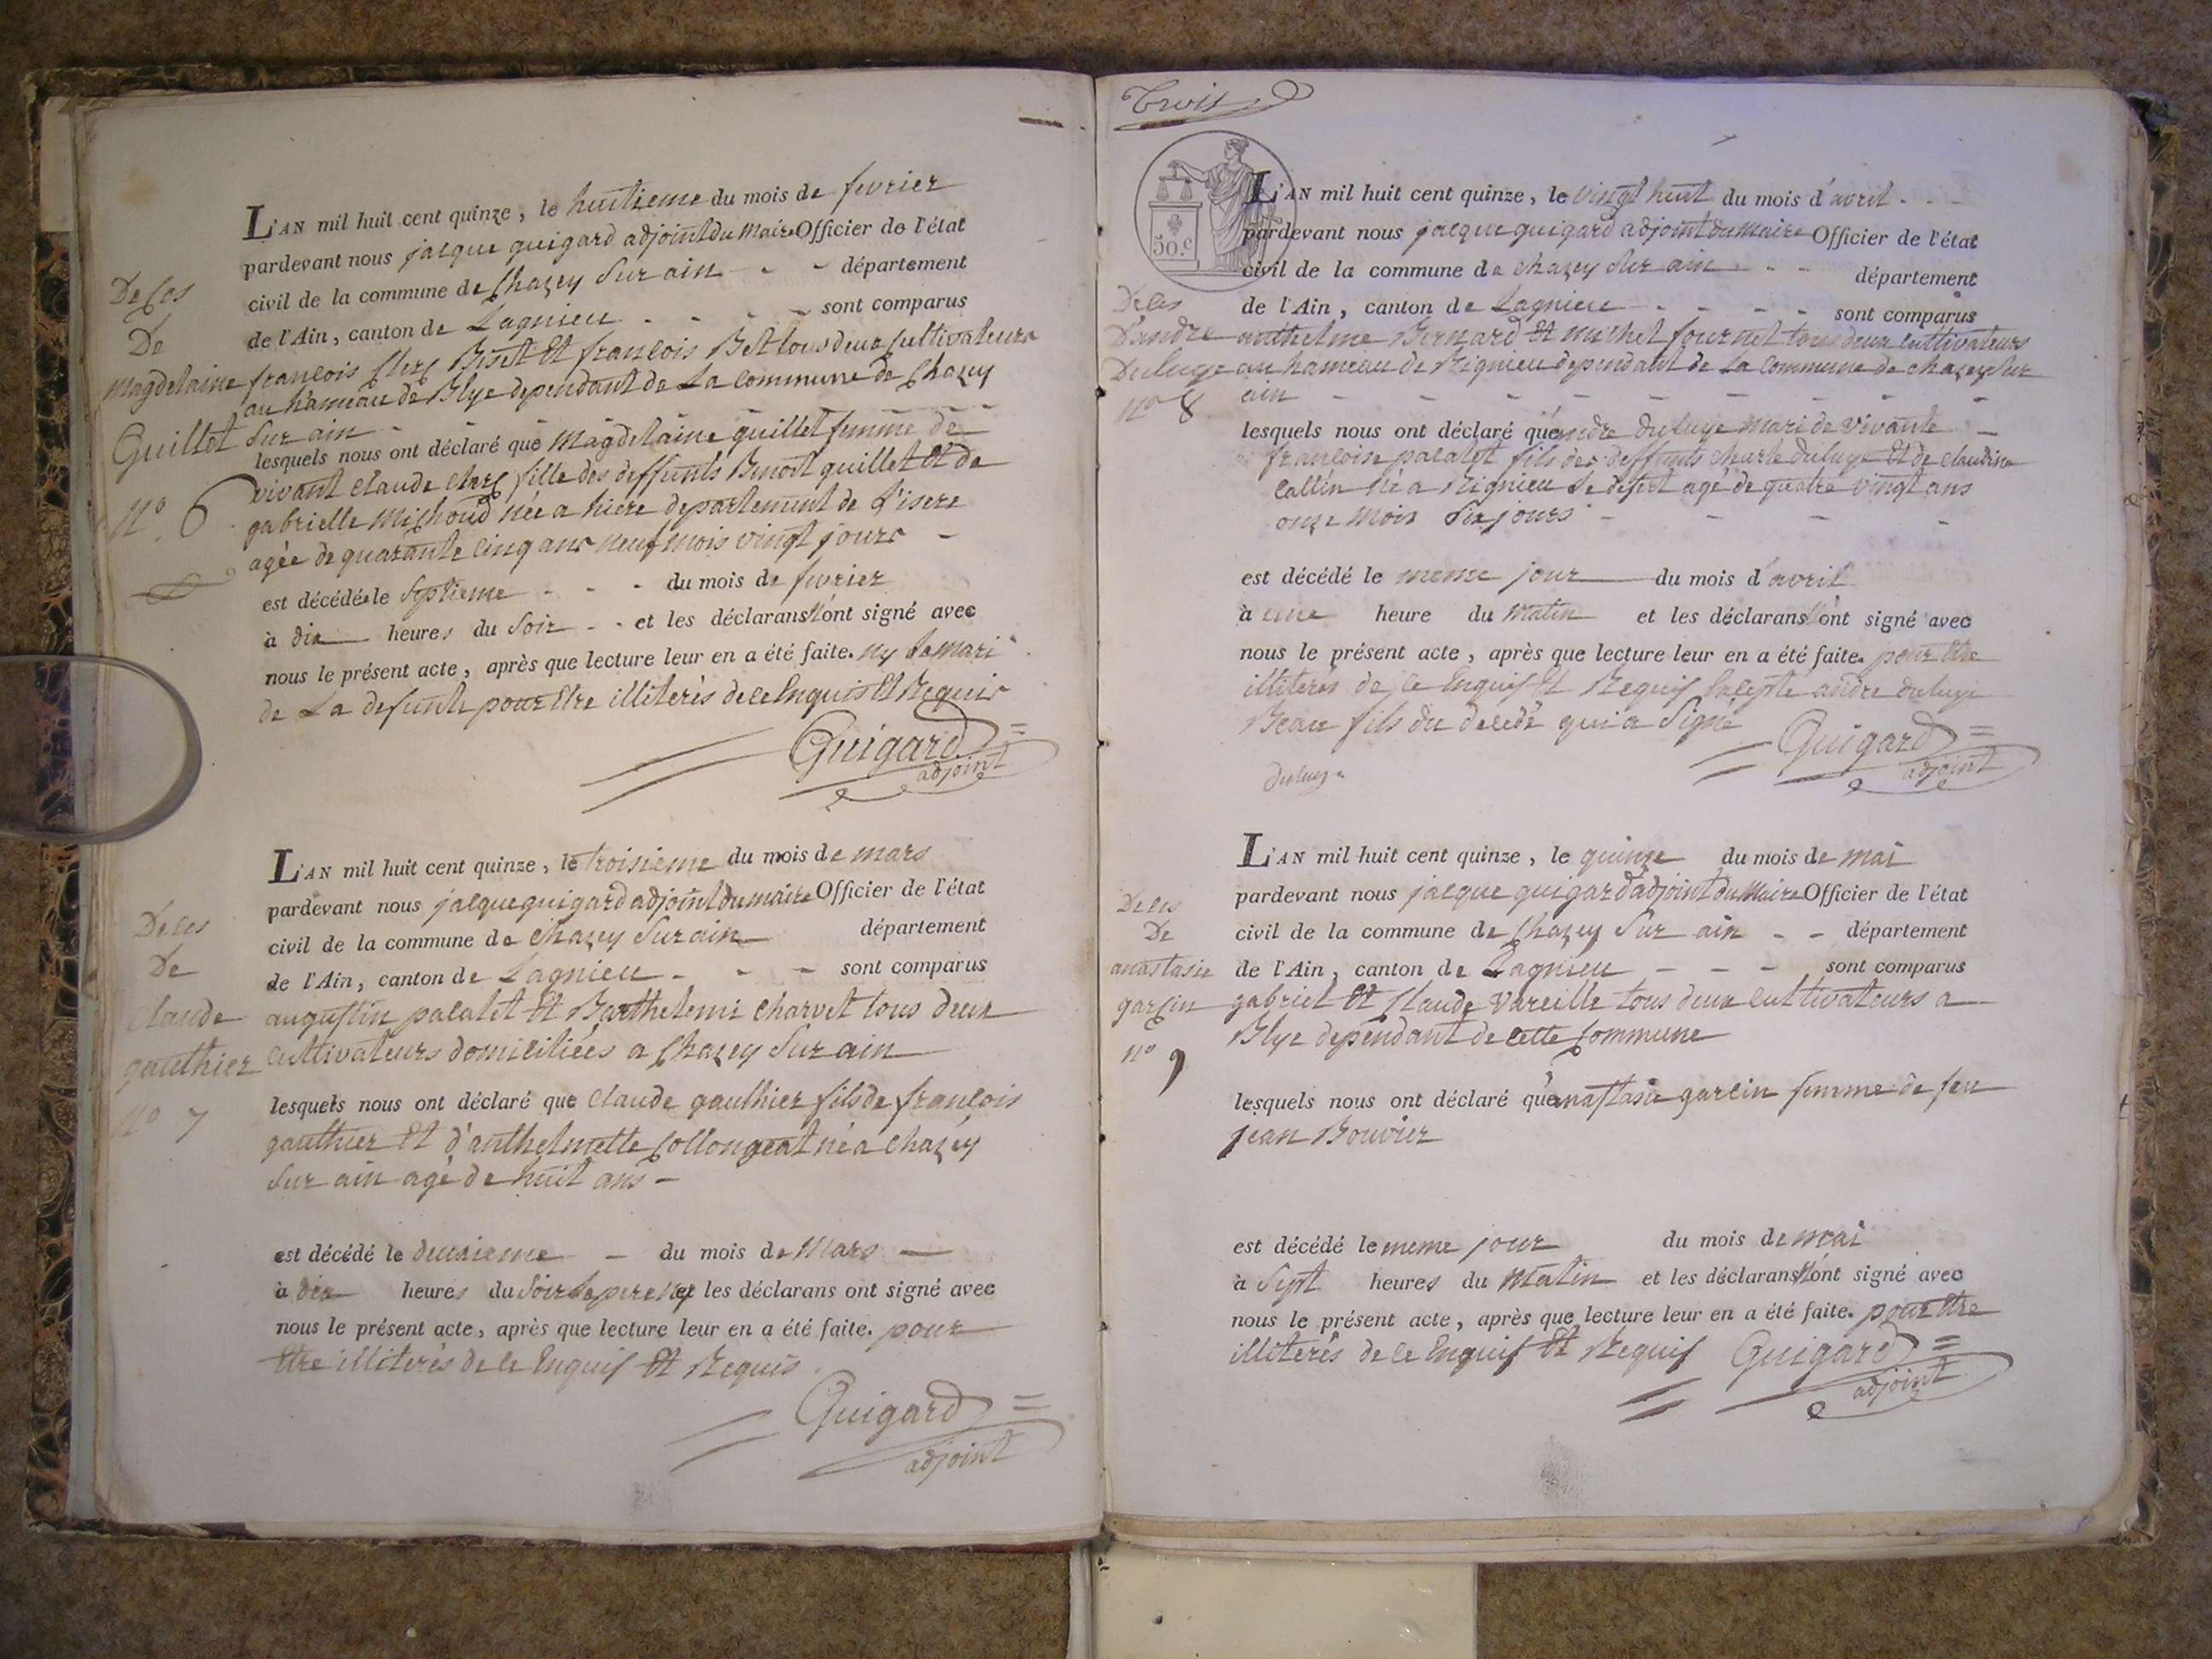 L'AN mil huit cent quinze, le huitieme du mois de fevrier
pardevant nous jacque guigard adjoint du Maire Officier de l'état
civil de la commune de Chazey Sur ain - - département
de l'Ain, canton de Lagnieu - - - - sont comparus
françois Clerc Biset Et françois Bet tous deux Cultivateurs
au hameau de Blye dependant de La Commune de Chazey
Sur ain - - - -
lesquels nous ont déclaré que Magdelaine guillet femme de
vivant claude clerc fille des deffunts Benoit guillet et de
gabrielle Michoud née a hiere departement de L'isere
agée de quarante cinq ans neuf mois vingt jours -
est décédée le Septieme - - - du mois de fevrier
à dix heures du Soir - - et les déclarans N'ont signé avec
nous le présent acte, après que lecture leur en a été faite. ny Le mari
de La defunte pour Etre illiterés de ce Enquis Et Requis
Guigard
adjoint
Deces
De
Magdelaine
Guillet
N° 6
L'AN mil huit cent quinze, le troisieme du mois de mars
pardevant nous jacque guigard adjoint du maire Officier de l'état
civil de la commune de Chazey Sur ain département
de l'Ain, canton de Lagnieu - - - sont comparus
augustin palatet Et Barthelemi Charvet tous deux
cultivateurs domiciliées a Chazey Sur ain
lesquels nous ont déclaré que Claude gauthier fils de françois
gauthier Et d'anthelmette Collongeat né a Chazey
Sur ain agé de huit ans -
est décédé le deuxieme - du mois de Mars
à dix heures du Soir Le pere Ny les déclarans ont signé avec
nous le présent acte, après que lecture leur en a été faite. pour
Etre illiterés de ce Enquis Et Requis.
Guigard
adjoint
Deces
De
Claude
gauthier
N° 7
Trois
50.c
L'AN mil huit cent quinze, le vingt huit du mois d'avril - - -
pardevant nous jacque guigard adjoint du Maire Officier de l'état
civil de la commune de Chazey Sur ain - - département
de l'Ain, canton de Lagnieu - - - - sont comparus
anthelme Bernard Et michel fournet tous deux cultivateurs
au hameau de Rignieu dependant de La Commune de chazey Sur
ain - - - - - - -
lesquels nous ont déclaré qu'andre duluye mari de vivante -
françoise palatet fils des deffunts charle duluye Et de claudine
Callin né a Rignieu Le desert agé de quatre vingt ans
onze mois Six jours - - - -
est décédé le meme jour du mois d'avril
à une heure du Matin et les déclarans N'ont signé avec
nous le présent acte, après que lecture leur en a été faite. pour Etre
illiterés de ce Enquis Et Requis Excepté andre duluye
Beau fils du decedé qui a Signé
Guigard
adjoint
duluye
Deces
D'andre
Duluye
N° 8
L'AN mil huit cent quinze, le quinze du mois de mai
pardevant nous jacque guigard adjoint du Maire Officier de l'état
civil de la commune de Chazey Sur ain - - département
de l'Ain, canton de Lagnieu - - - sont comparus
gabriel Et Claude Vareille tous deux cultivateurs a
Blye dependant de cette Commune
lesquels nous ont déclaré qu'anastasie garcin femme de feu
jean Bouvier
est décédé le meme jour du mois de mai
à Sept heures du Matin et les déclarans N'ont signé avec
nous le présent acte, après que lecture leur en a été faite. pour Etre
illiterés de ce Enquis Et Requis Guigard
adjoint
Deces
De
anastasie
garcin
N° 9